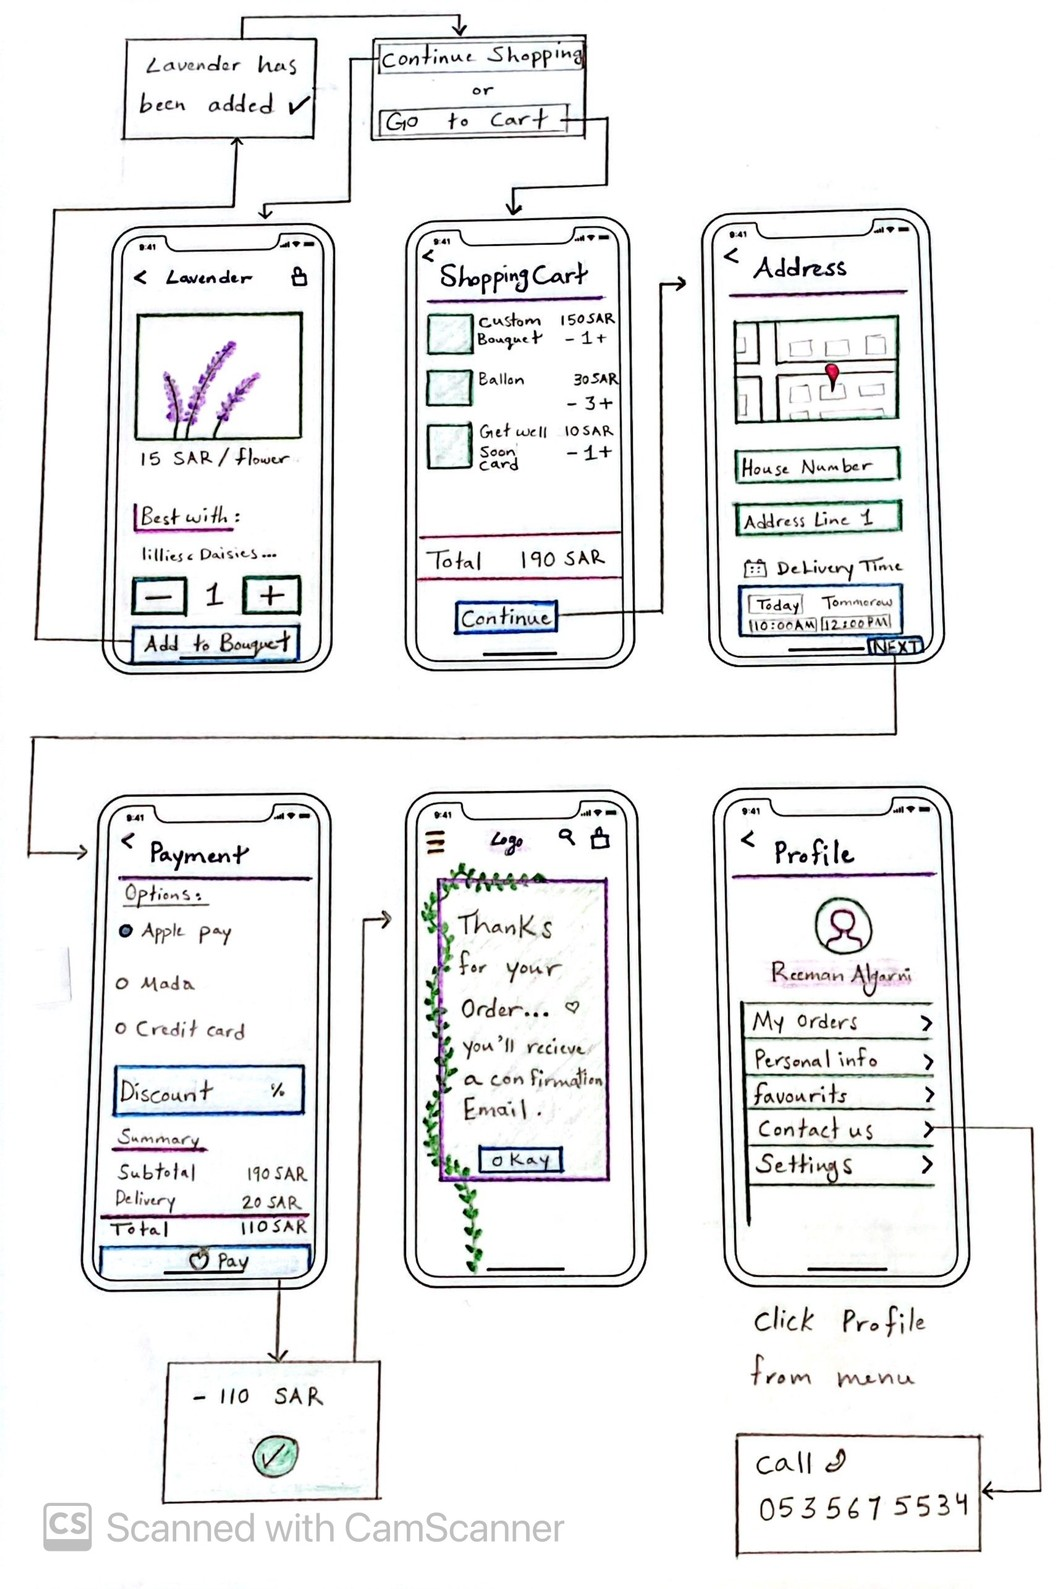 Lavender has
been added ✓
Continue Shopping
or
Go to Cart
9:41
< Lavender
15 SAR / flower
Best with:
lillies & Daisies...
— 1 +
Add to Bouquet
9:41
<
Shopping Cart
Custom 150 SAR
Bouquet - 1 +
Ballon 30 SAR
- 3 +
Get well 10 SAR
Soon - 1 +
card
Total 190 SAR
Continue
9:41
< Address
House Number
Address Line 1
DeLivery Time
Today Tommorow
10:00AM 12:00PM
NEXT
9:41
< Payment
Options:
Apple pay
Mada
Credit card
Discount %
Summary
Subtotal 190 SAR
Delivery 20 SAR
Total 110 SAR
Pay
- 110 SAR
✓
9:41
Logo
Thanks
for your
Order... ♡
you'll recieve
a confirmation
Email.
okay
9:41
< Profile
Reeman Algarni
My Orders >
Personal info >
favourits >
Contact us >
Settings >
Click Profile
from menu
Call
053567 5534
CS Scanned with CamScanner